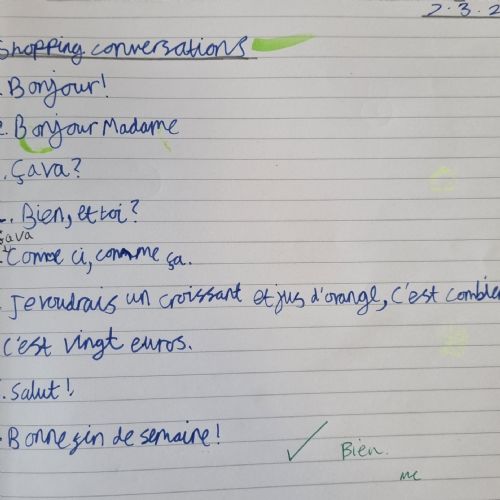 2.3.2
Shopping conversations
. Bonjour!
2. Bonjour Madame
. Ça va?
. Bien, et toi?
Ça va
. Comme ci, comme ça.
. Je voudrais un croissant et jus d'orange, c'est combien
C'est vingt euros.
. Salut!
. Bonne fin de semaine!
Bien.